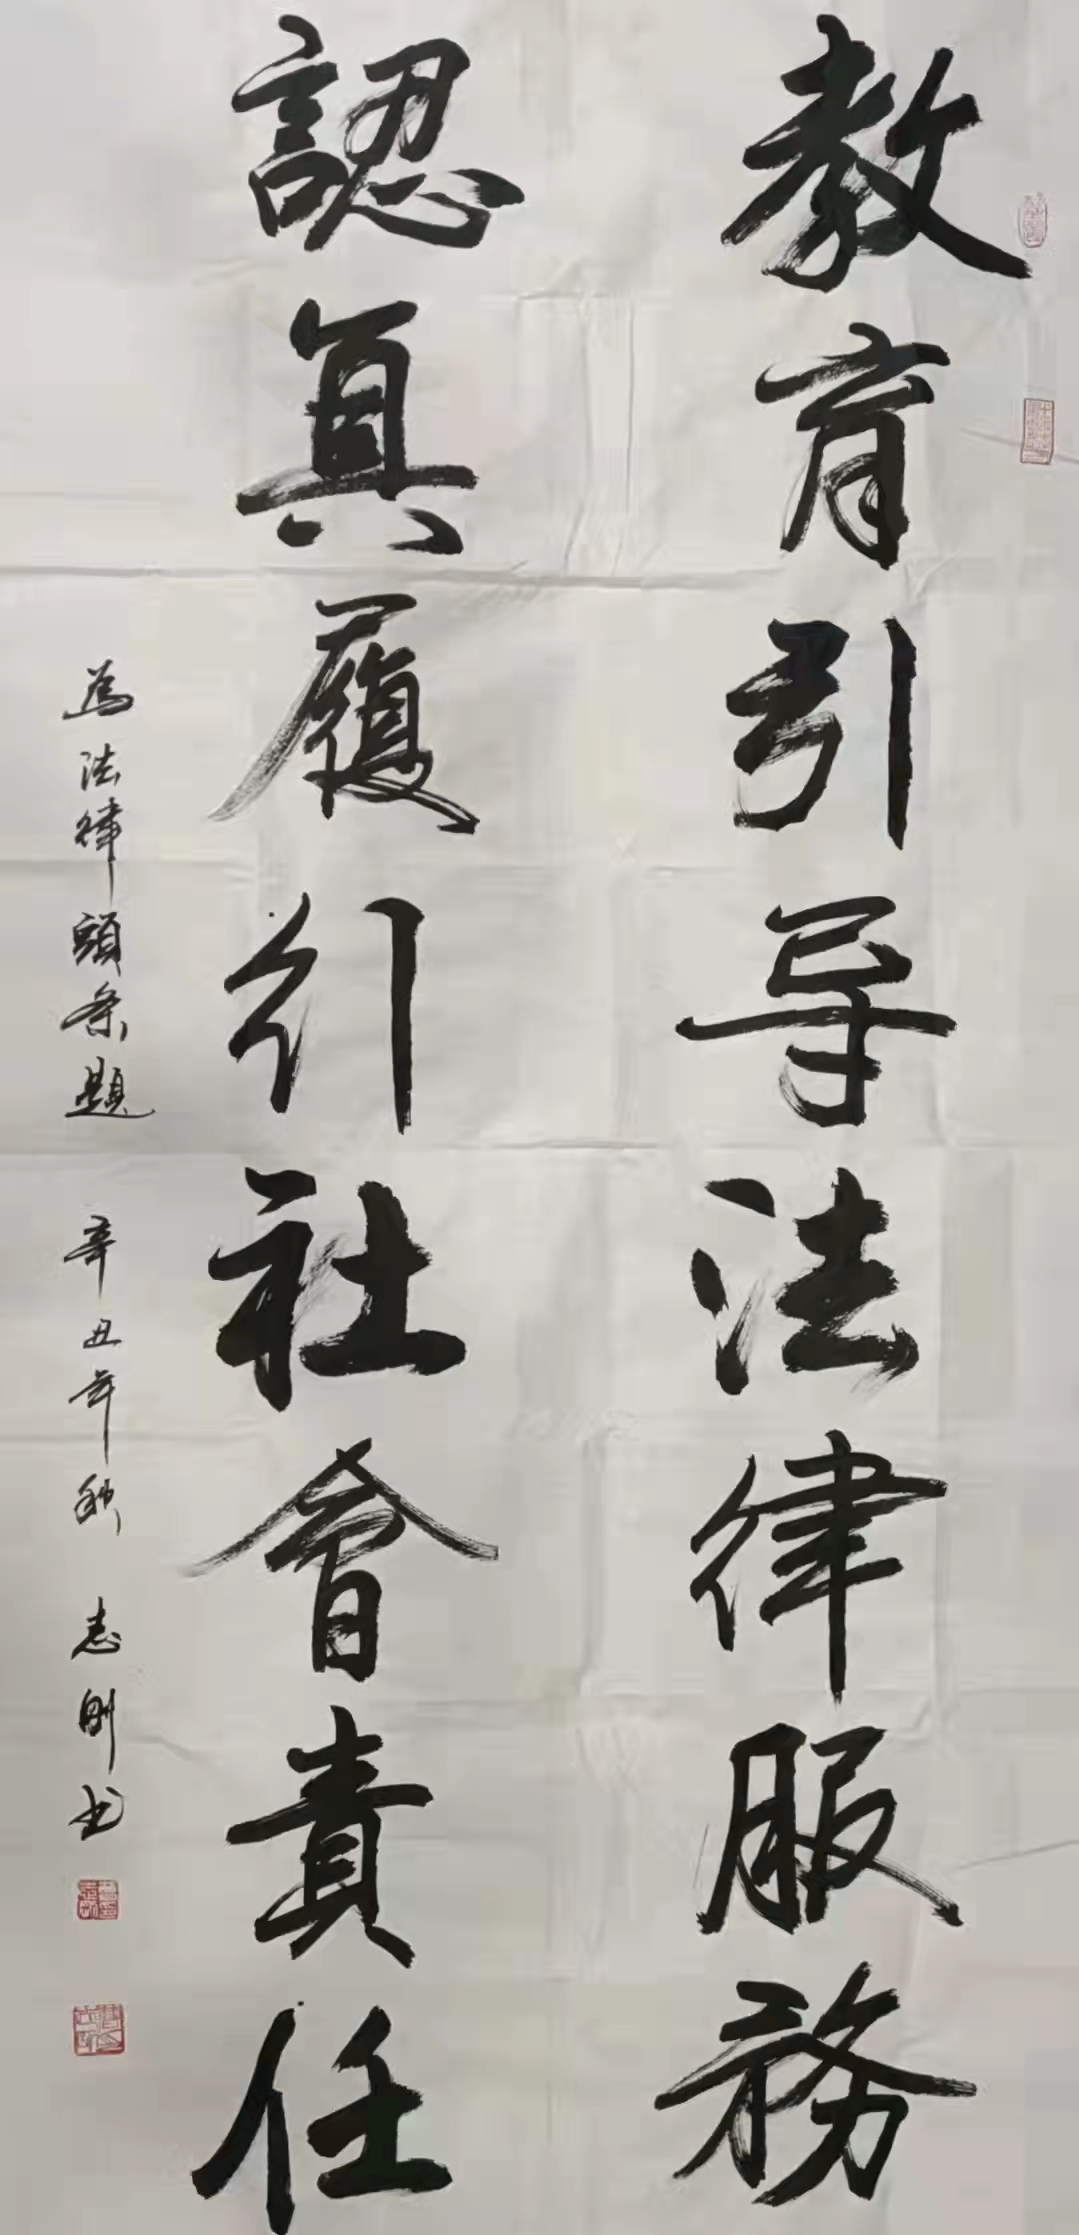 教育引导法律服務
認真履行社會責任
為法律頭条题 辛丑年秋 志刚书